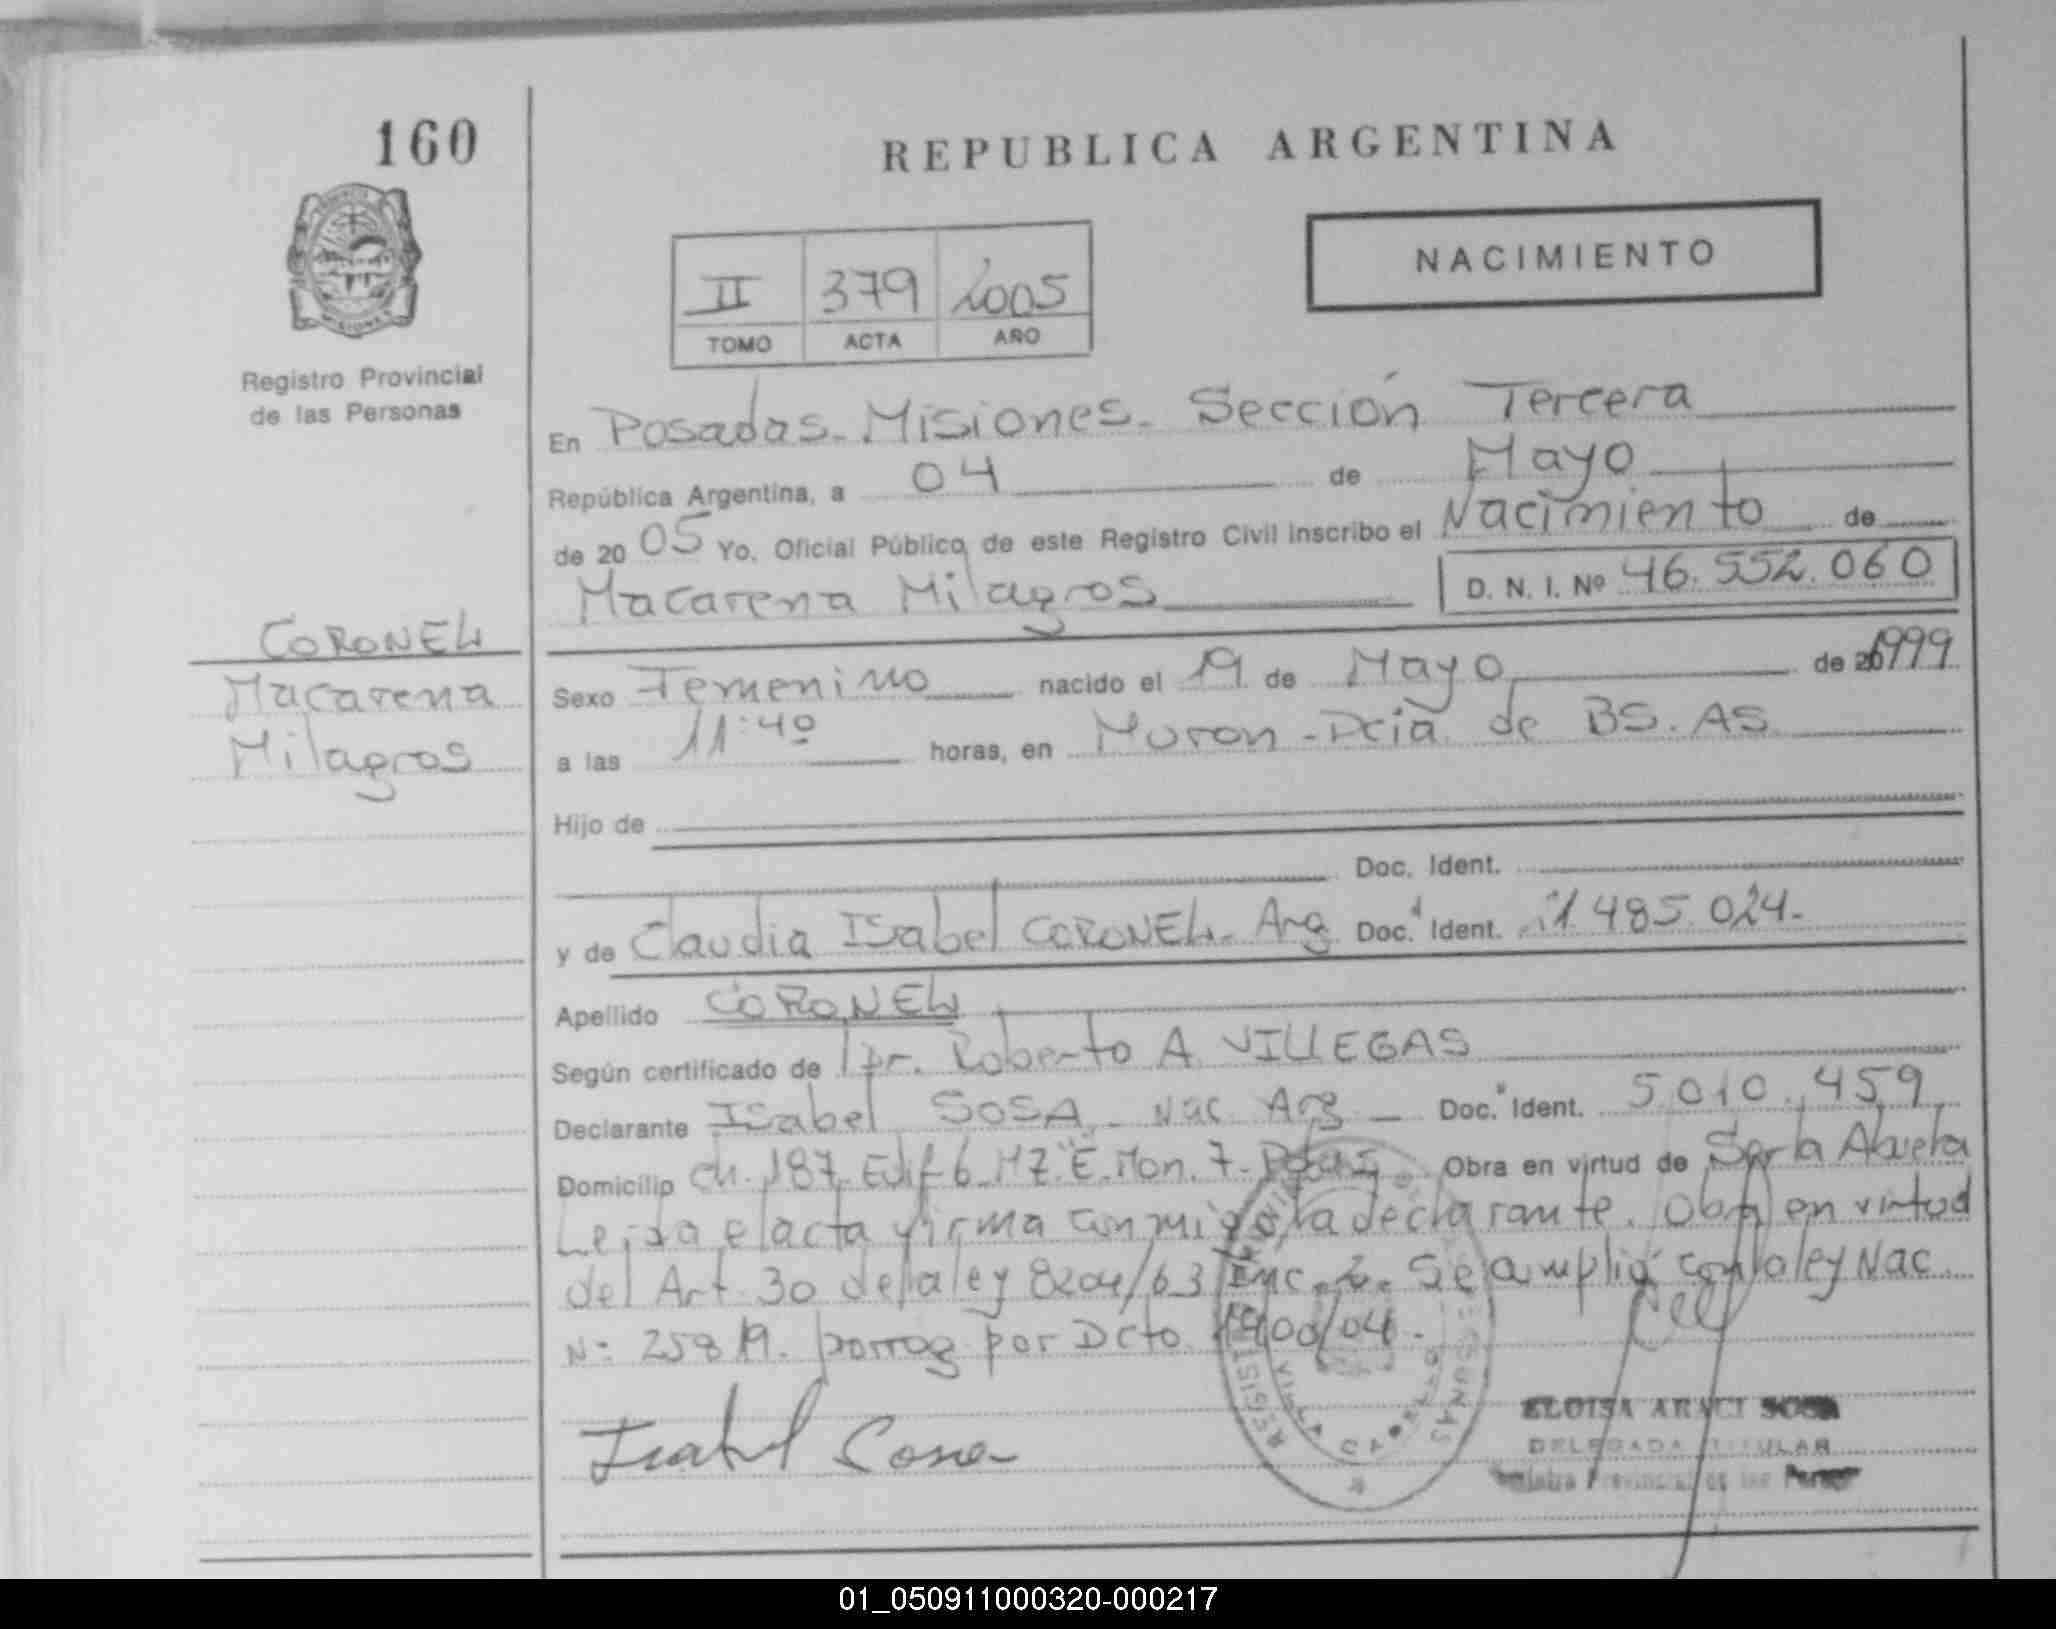 160
REPUBLICA ARGENTINA
NACIMIENTO
II 379 2005
TOMO ACTA AÑO
Registro Provincial
de las Personas
En Posadas - Misiones - Sección Tercera
República Argentina, a 04 de Mayo
de 2005 Yo, Oficial Público de este Registro Civil inscribo el Nacimiento de
Macarena Milagros D. N. I. Nº 46.552.060
CORONEL
Macarena
Milagros
Sexo Femenino nacido el 19 de Mayo de 1999
a las 11:40 horas, en Moron - Pcia de BS. AS
Hijo de
Doc. Ident.
y de Claudia Isabel CORONEL - Arg Doc. Ident. 485.024 -
Apellido CORONEL
Según certificado de Dr. Roberto A. VILLEGAS
Declarante Isabel SOSA - Nac Arg - Doc. Ident. 5.010.459
Domicilio Ch. 187 Edif 6 - MZ "E" - Mon. 7 - Pdas Obra en virtud de Ser la Abuela
Leida el acta firma conmigo la declarante. Obra en virtud
del Art. 30 de la ley 8204/63 Inc. 2. Se amplia con la ley Nac.
Nº 25819. prorrog por Dcto. 1900/04.
Isabel Sosa
ELOISA ARACI SOSA
DELEGADA TITULAR
Registro Provincial de las Person
01_050911000320-000217